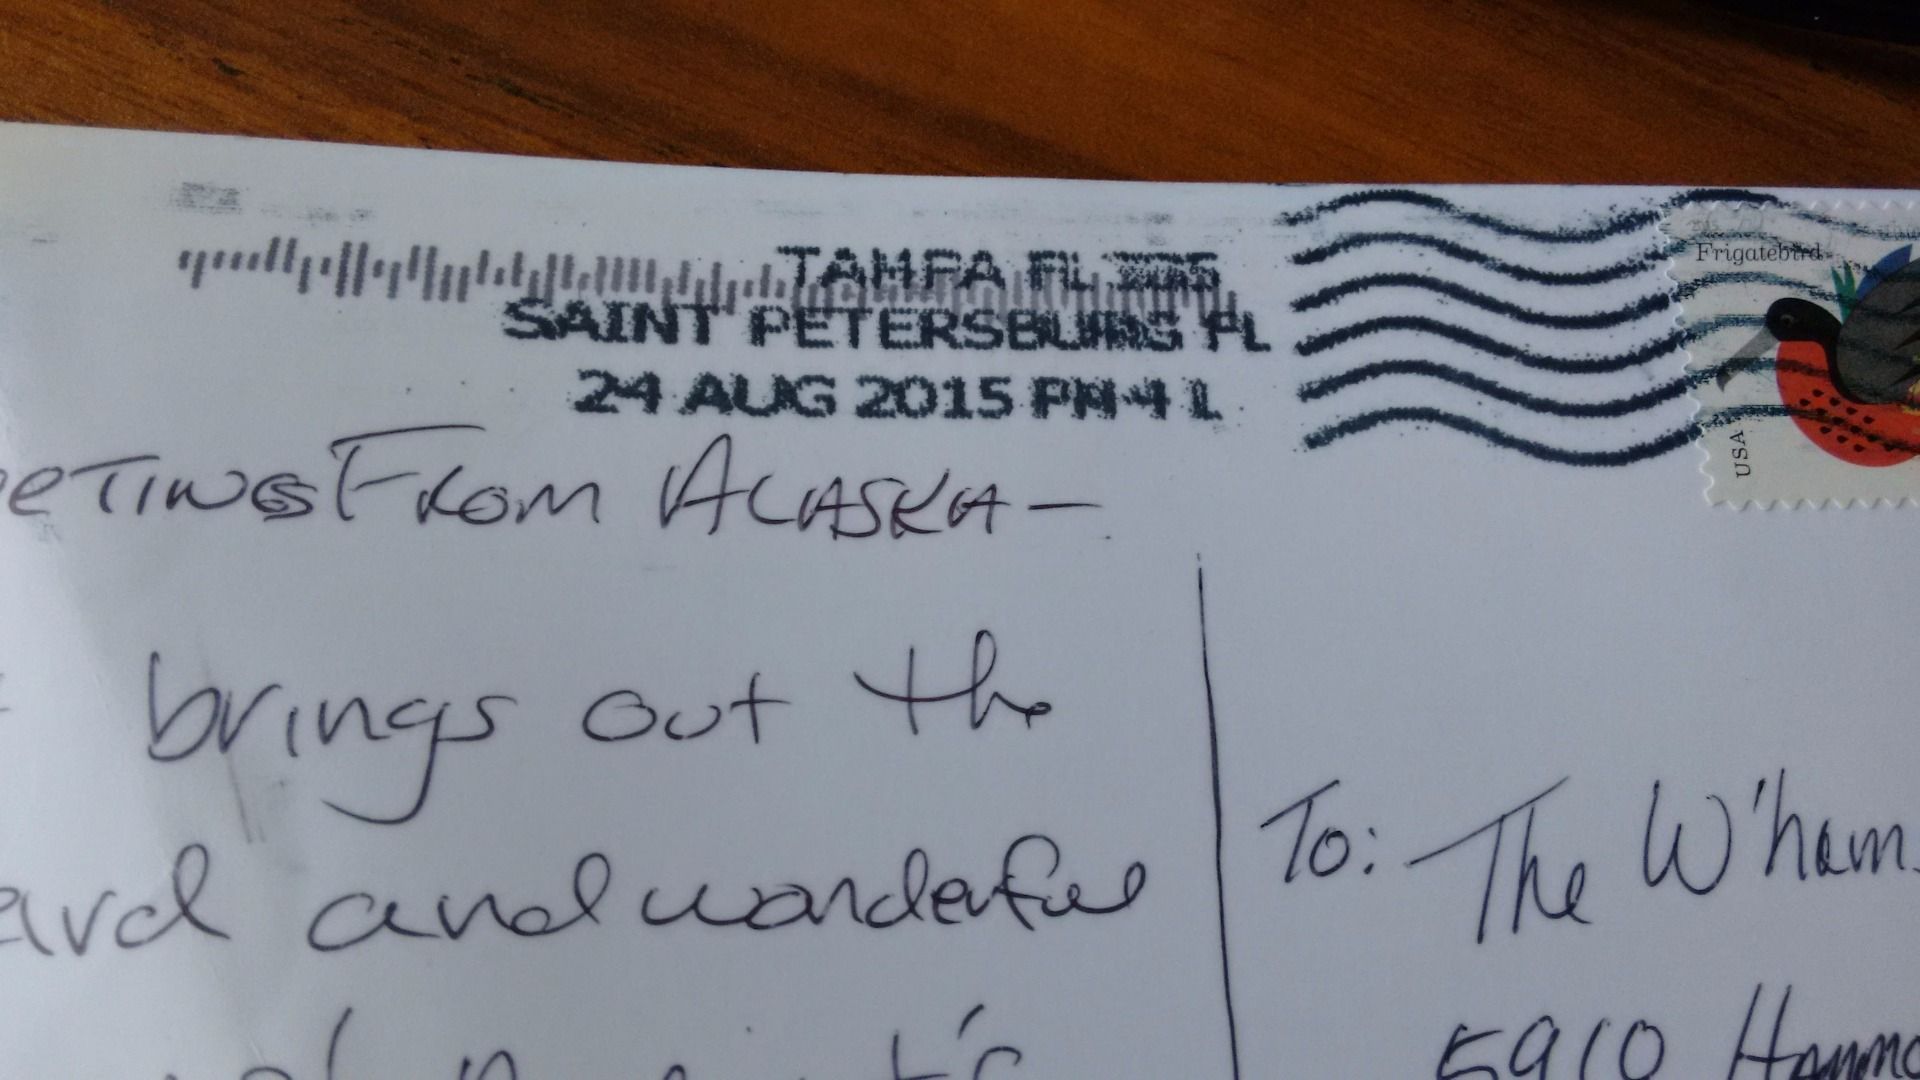 TAMPA FL 335
SAINT PETERSBURG FL
24 AUG 2015 PM 4 L
Frigatebird
USA
eeTINGS FROM ALASKA —
brings out the
ard and wonderful
To: The W'ham
5910 Hammo